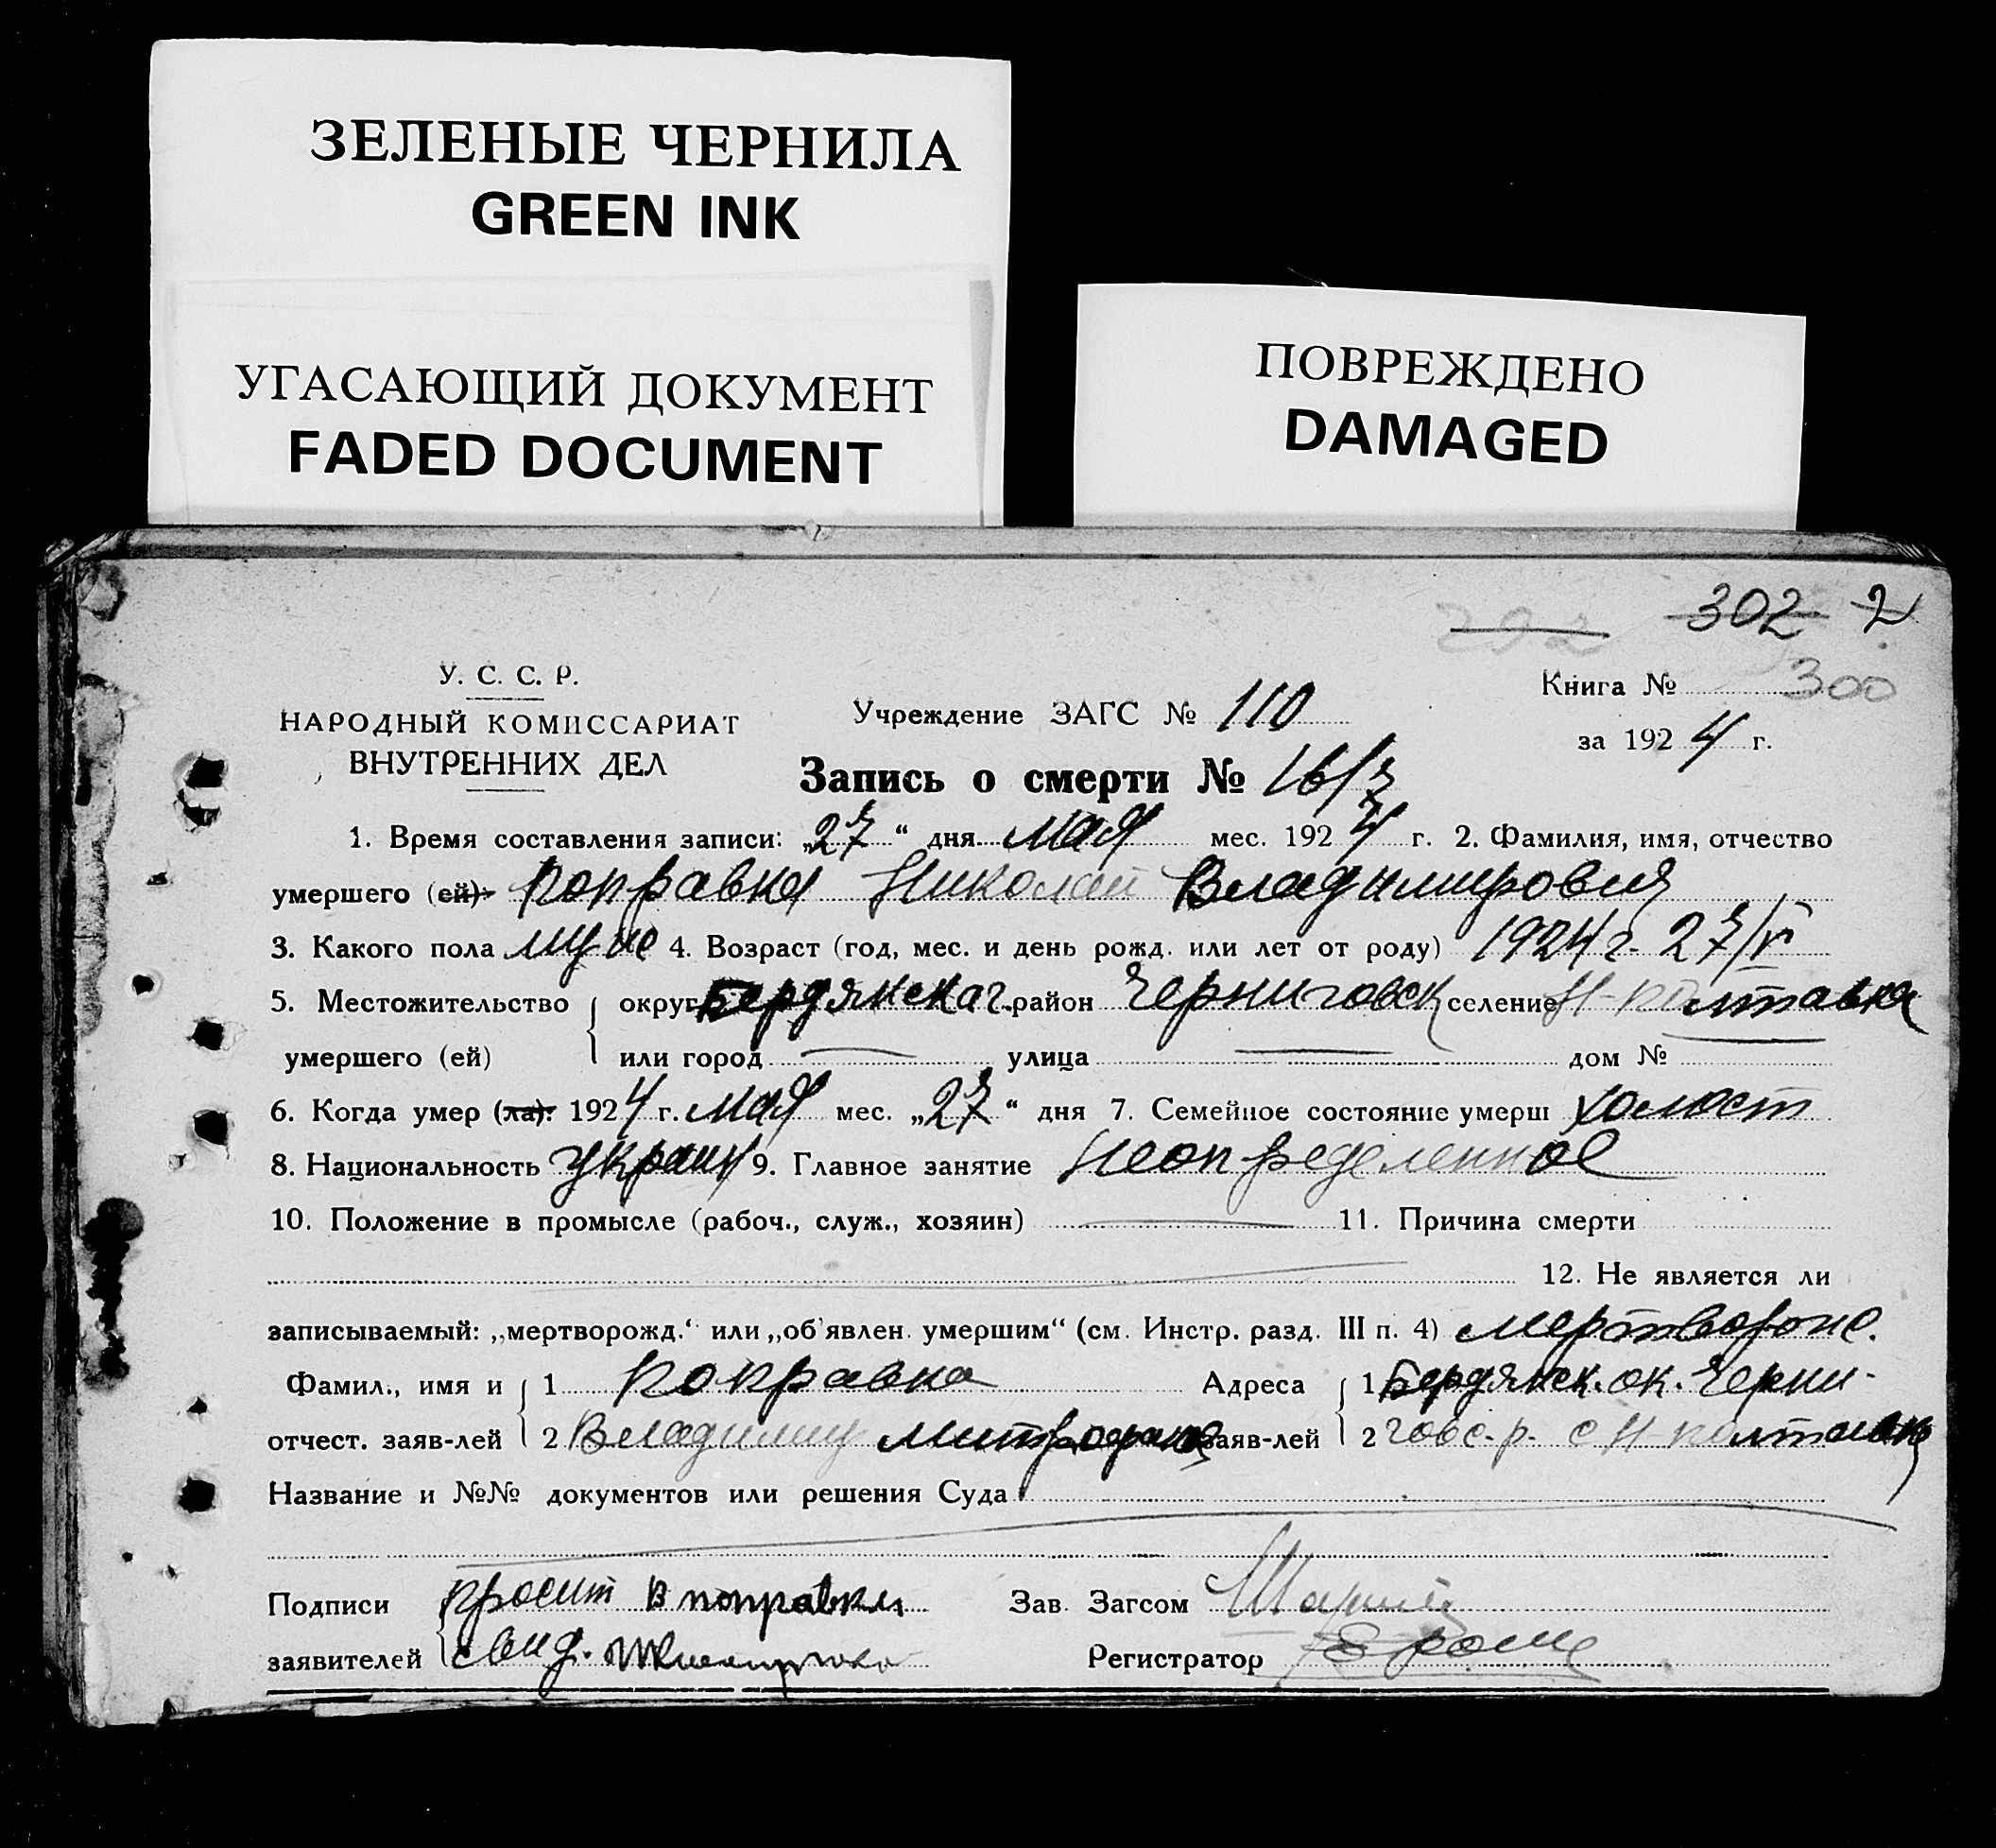 ЗЕЛЕНЫЕ ЧЕРНИЛА
GREEN INK
УГАСАЮЩИЙ ДОКУМЕНТ
FADED DOCUMENT
ПОВРЕЖДЕНО
DAMAGED
292 302 2
У. С. С. Р.
НАРОДНЫЙ КОМИССАРИАТ
ВНУТРЕННИХ ДЕЛ
Учреждение ЗАГС № 110
Книга № 300
за 1924 г.
Запись о смерти № 16/3
1. Время составления записи: „27“ дня мая мес. 1924 г. 2. Фамилия, имя, отчество
умершего (ей): Поправка Николай Владимирович
3. Какого пола муж 4. Возраст (год, мес. и день рожд. или лет от роду) 1924 г. 27/V
5. Местожительство округ Бердянская район Черниговск селение Н-Полтавка
умершего (ей) или город — улица — дом № —
6. Когда умер (ла): 1924 г. мая мес. „27“ дня 7. Семейное состояние умерш холост
8. Национальность украин 9. Главное занятие Неопределенное
10. Положение в промысле (рабоч., служ., хозяин) — 11. Причина смерти
12. Не является ли
записываемый: „мертворожд.“ или „об'явлен. умершим“ (см. Инстр. разд. III п. 4) мертворож.
Фамил., имя и 1 Поправка Адреса 1 Бердянск. ок. Черни-
отчест. заяв-лей 2 Владимир Митрофан заяв-лей 2 говс. р. с Н-Полтавк
Название и №№ документов или решения Суда
Подписи В поправка Зав. Загсом
заявителей Регистратор